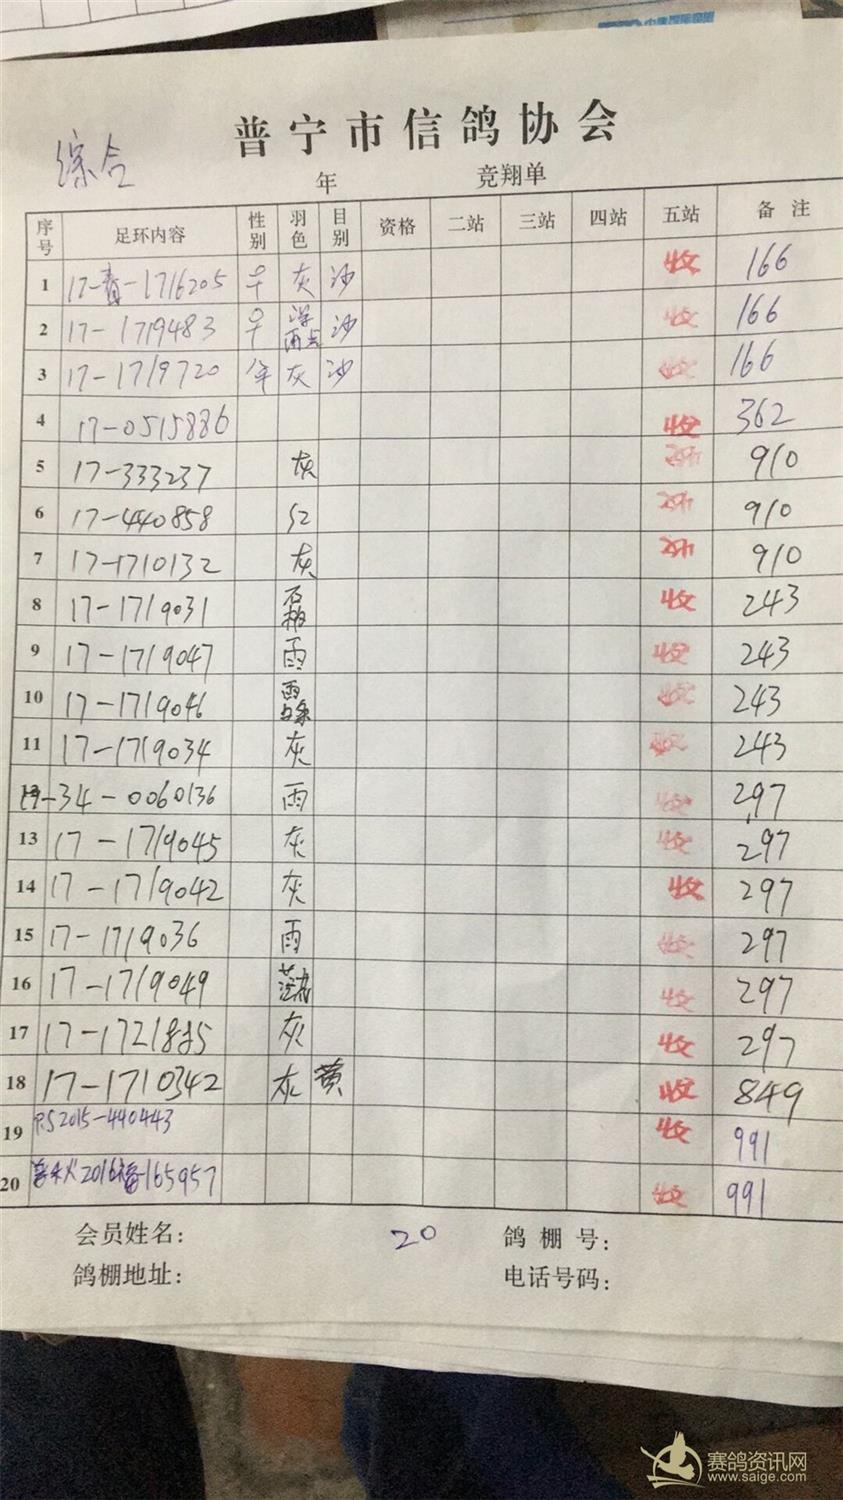 综合
普宁市信鸽协会
年 竞翔单
序号 足环内容 性别 羽色 目别 资格 二站 三站 四站 五站 备注
1 17-青-1716205 灰 沙 收 166
2 17-1719483 深雨点 沙 收 166
3 17-1719720 灰 沙 166
4 17-0515886 收 362
5 17-333237 灰 收 910
6 17-440858 红 收 910
7 17-1710132 灰 收 910
8 17-1719031 石板 收 243
9 17-1719047 雨 收 243
10 17-1719046 雨 收 243
11 17-1719034 灰 收 243
19-34-0060136 雨 收 297
13 17-1719045 灰 收 297
14 17-1719042 灰 收 297
15 17-1719036 雨 收 297
16 17-1719049 收 297
17 17-1721835 灰 收 297
18 17-1710342 灰 黄 收 849
19 P.S2015-440443 收 991
20 2016 165957 收 991
会员姓名: 20 鸽棚号:
鸽棚地址: 电话号码:
赛鸽资讯网
www.saige.com